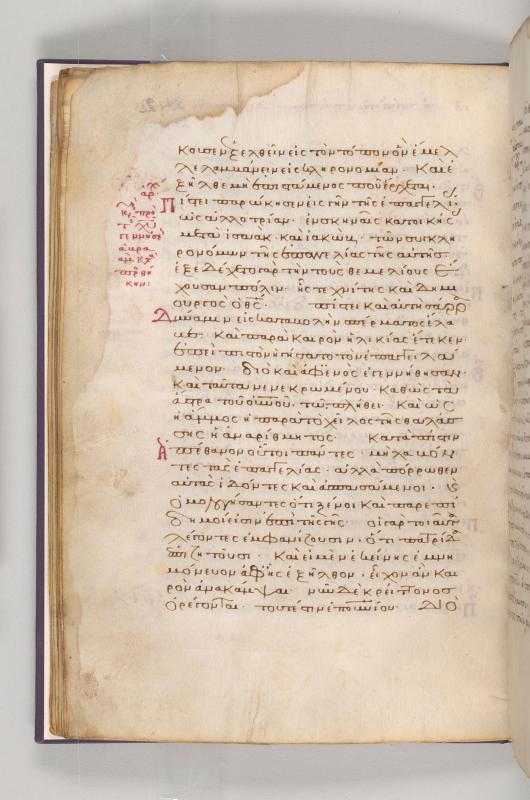 κουσεν ἐξελθεῖν εἰς τὸν τόπον ὃν ἔμελ
λε λαμμάνειν εἰς κληρονομίαν· Καὶ ἐ
ξῆλθε μὴ ἐπιστάμενος ποῦ ἔρχεται·
Πίστει παρώκησεν εἰς τὴν γῆν τῆς ἐπαγγελί
ὡς ἀλλοτρίαν· ἐν σκηναῖς κατοικήσ
μετὰ ἰσαὰκ· καὶ ἰακὼβ· τῶν συγκλη
ρονόμων τῆς ἐπαγγελίας τῆς αὐτῆς·
ἐξεδέχετο γὰρ τὴν τοὺς θεμελίους ἔ
χουσαν πόλιν· ἧς τεχνίτης καὶ δημι
ουργὸς ὁ θς· πίστει καὶ αὐτὴ σάρρα
Δύναμιν εἰς καταβολὴν σπέρματος ἔλα
βεν· Καὶ παρὰ καιρὸν ἡλικίας ἔτεκεν·
ἐπεὶ πιστὸν ἡγήσατο τὸν ἐπαγγειλά
μενον· διὸ καὶ ἀφ' ἑνὸς ἐγεννήθησαν·
Καὶ ταῦτα νενεκρωμένου· Καθὼς τὰ
ἄστρα τοῦ οὐνοῦ· τῶ πλήθει· Καὶ ὡς
ἡ ἄμμος ἡ παρὰ τὸ χεῖλος τῆς θαλάσ
σης ἡ ἀναρίθμητος· Κατὰ πίστιν
ἀπέθανον οὗτοι πάντες· μὴ λαβόν
τες τὰς ἐπαγγελίας· ἀλλὰ πόρρωθεν
αὐτὰς ἰδόντες καὶ ἀσπασάμενοι· ϗ
ὁμολογήσαντες ὅτι ξένοι καὶ παρεπί
δημοί εἰσιν ἐπὶ τῆς γῆς· οἱ γὰρ τοιαῦτ
λέγοντες ἐμφανίζουσιν· ὅτι πατρίδα
ἐπιζητοῦσι· Καὶ εἰ μὲν ἐκείνης ἐμνη
μόνευον ἀφ' ἧς ἐξῆλθον· εἶχον ἂν και
ρὸν ἀνακάμψαι· νῦν δὲ κρείττονος
ὀρέγονται· τουτέστιν ἐπουνίου· Διὸ